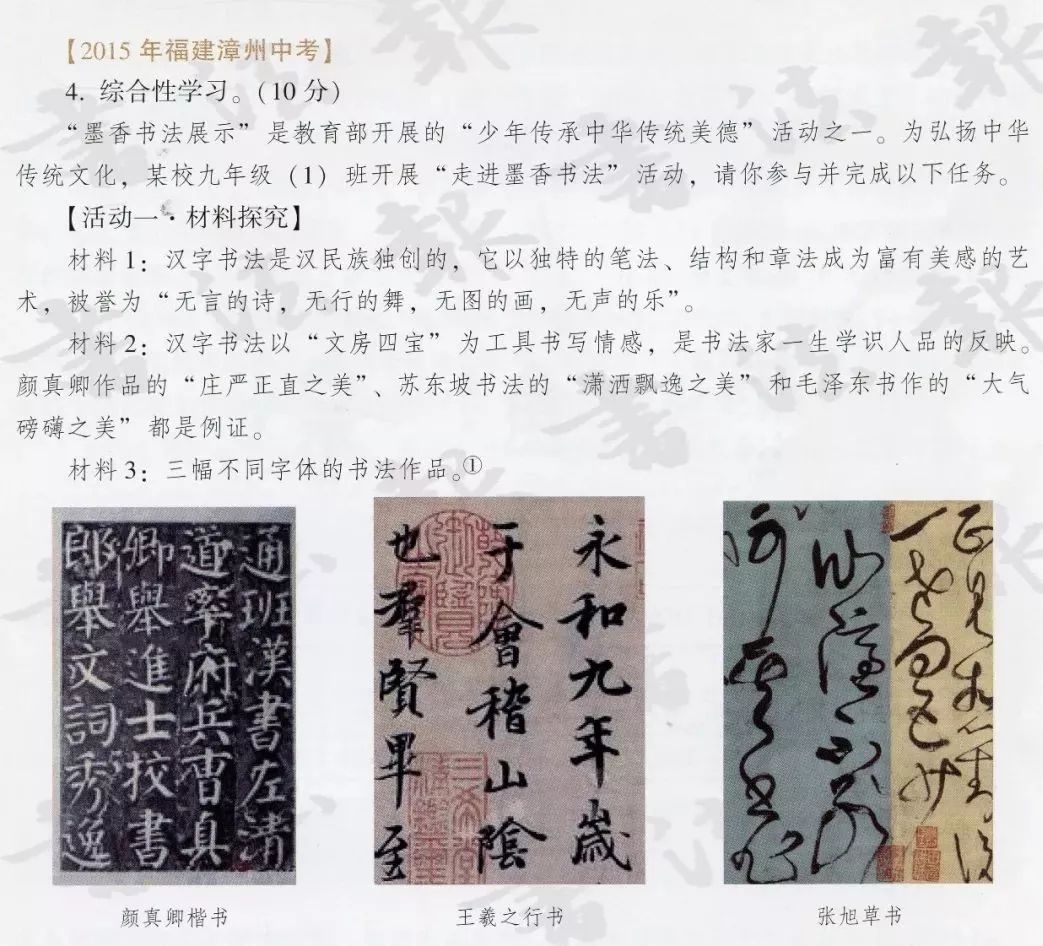 【2015 年福建漳州中考】
4. 综合性学习。(10 分)
“墨香书法展示”是教育部开展的“少年传承中华传统美德”活动之一。为弘扬中华
传统文化，某校九年级（1）班开展“走进墨香书法”活动，请你参与并完成以下任务。
【活动一·材料探究】
材料 1：汉字书法是汉民族独创的，它以独特的笔法、结构和章法成为富有美感的艺
术，被誉为“无言的诗，无行的舞，无图的画，无声的乐”。
材料 2：汉字书法以“文房四宝”为工具书写情感，是书法家一生学识人品的反映。
颜真卿作品的“庄严正直之美”、苏东坡书法的“潇洒飘逸之美”和毛泽东书作的“大气
磅礴之美”都是例证。
材料 3：三幅不同字体的书法作品。①
通班漢書左清
道率府兵曹真
卿舉進士校書
郎舉文詞秀逸
永和九年歲
于會稽山陰
也羣賢畢至
颜真卿楷书
王羲之行书
张旭草书